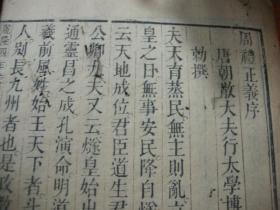 周禮正義序
唐朝散大夫行太學博
勑撰
夫天育蒸民無主則亂立
皇之日無事安民降自燧
云天地成位君臣道生君
公卿大夫又云燧皇始出
通靈昌之成孔演命明道
羲前風姓始王天下者斗
人別長九州者也是政教